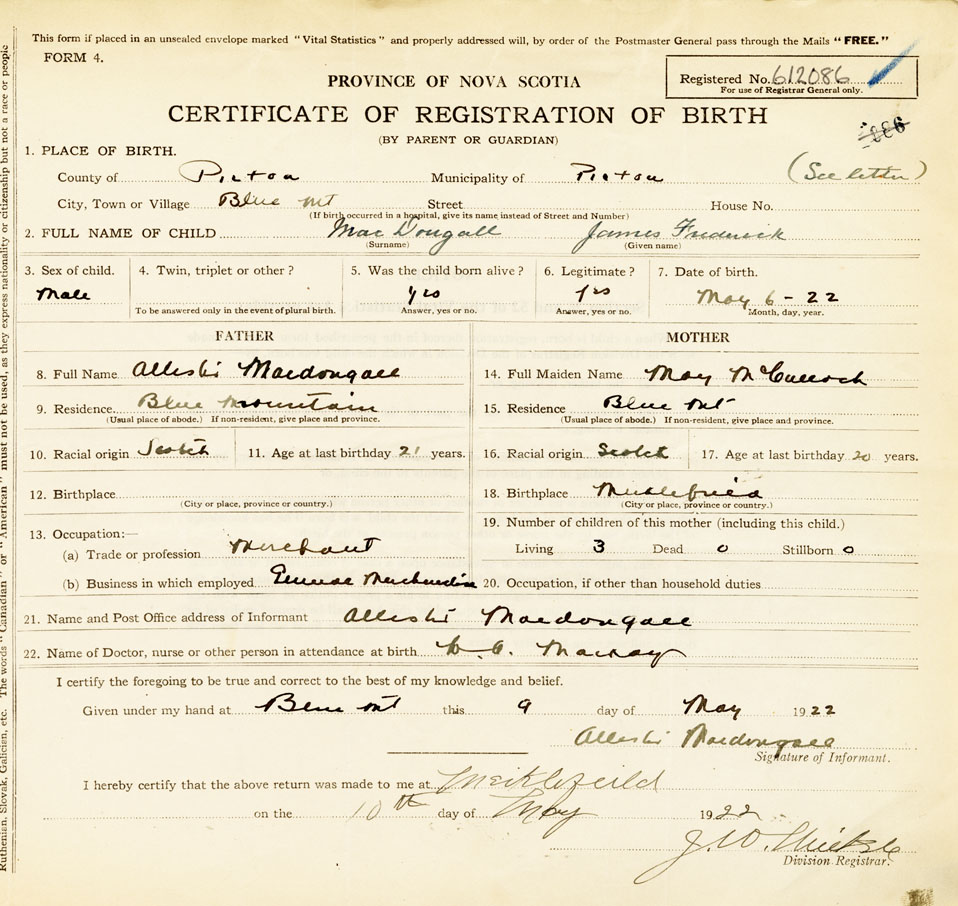 This form if placed in an unsealed envelope marked "Vital Statistics" and properly addressed will, by order of the Postmaster General pass through the Mails "FREE."
FORM 4.
Registered No. 612086
For use of Registrar General only.
PROVINCE OF NOVA SCOTIA
CERTIFICATE OF REGISTRATION OF BIRTH
(BY PARENT OR GUARDIAN)
1. PLACE OF BIRTH.
(See letter)
County of Pictou Municipality of Pictou
City, Town or Village Blue Mt Street House No.
(If birth occurred in a hospital, give its name instead of Street and Number)
2. FULL NAME OF CHILD MacDougall James Frederick
(Surname) (Given name)
3. Sex of child. 4. Twin, triplet or other? 5. Was the child born alive? 6. Legitimate? 7. Date of birth.
Male yes yes May 6 - 22
To be answered only in the event of plural birth. Answer, yes or no. Answer, yes or no. Month, day, year.
FATHER
8. Full Name Allister Macdougall
9. Residence Blue Mountain
(Usual place of abode.) If non-resident, give place and province.
10. Racial origin Scotch 11. Age at last birthday 21 years.
12. Birthplace
(City or place, province or country.)
13. Occupation:—
(a) Trade or profession Merchant
(b) Business in which employed General Merchandise
MOTHER
14. Full Maiden Name May McCulloch
15. Residence Blue Mt
(Usual place of abode.) If non-resident, give place and province.
16. Racial origin Scotch 17. Age at last birthday 20 years.
18. Birthplace
(City or place, province or country.)
19. Number of children of this mother (including this child.)
Living 3 Dead 0 Stillborn 0
20. Occupation, if other than household duties
21. Name and Post Office address of Informant Allister Macdougall
22. Name of Doctor, nurse or other person in attendance at birth Mackay
I certify the foregoing to be true and correct to the best of my knowledge and belief.
Given under my hand at Blue Mt this 9 day of May 1922
Allister Macdougall
Signature of Informant.
I hereby certify that the above return was made to me at Meiklefield
on the 10th day of May 1922
J. W.
Division Registrar.
Ruthenian, Slovak, Galician, etc. The words "Canadian" or "American" must not be used, as they express nationality or citizenship but not a race or people